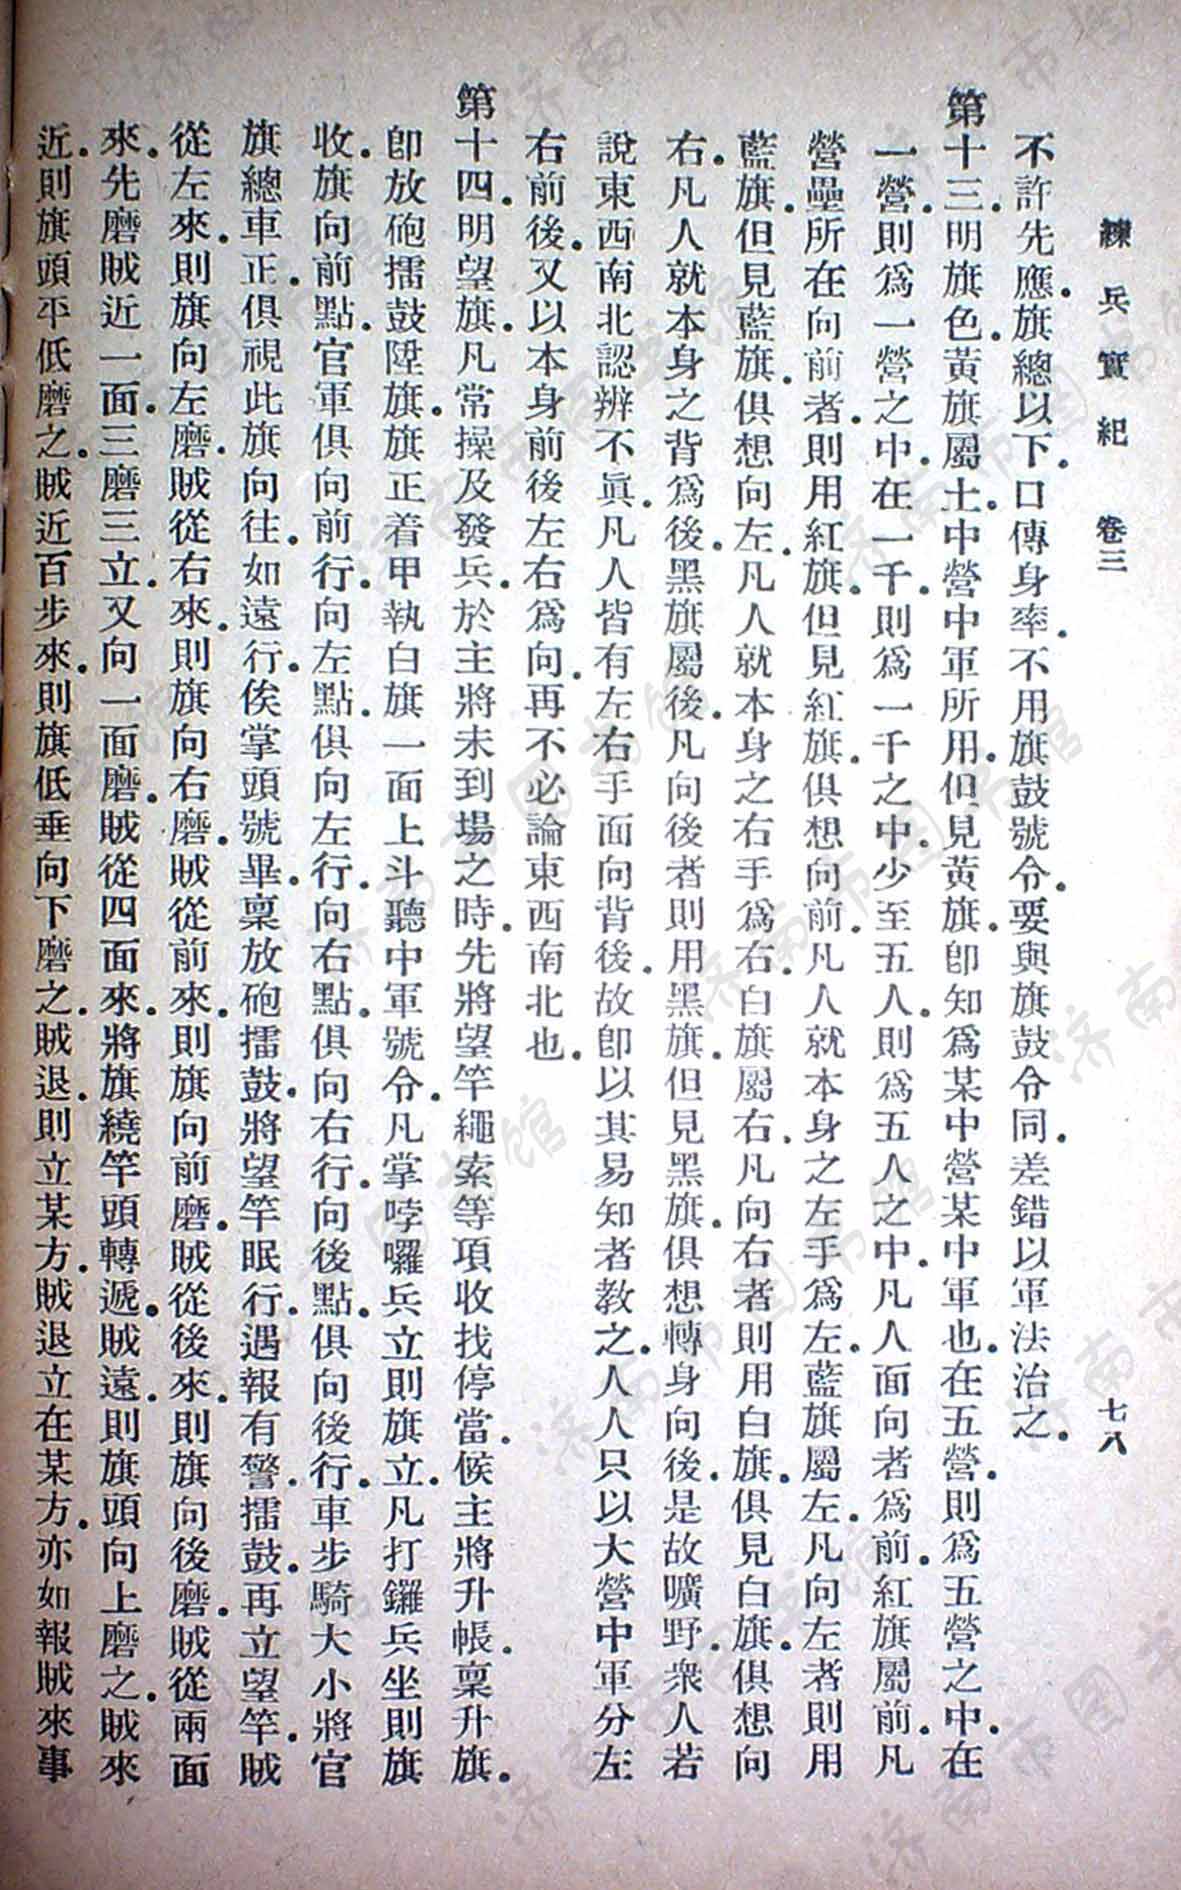 練兵實紀　卷三　七八
不許先應。旗總以下。口傳身率。不用旗鼓號令。要與旗鼓令同。差錯以軍法治之。
第十三。明旗色。黃旗屬土。中營中軍所用。但見黃旗。卽知爲某中營某中軍也。在五營。則爲五營之中。在
一營。則爲一營之中。在一千。則爲一千之中。少至五人。則爲五人之中。凡人面向者爲前。紅旗屬前。凡
營壘所在向前者。則用紅旗。但見紅旗。俱想向前。凡人就本身之左手爲左。藍旗屬左。凡向左者則用
藍旗。但見藍旗。俱想向左。凡人就本身之右手爲右。白旗屬右。凡向右者則用白旗。俱見白旗。俱想向
右。凡人就本身之背爲後。黑旗屬後。凡向後者則用黑旗。但見黑旗。俱想轉身向後。是故曠野。衆人若
說東西南北認辨不眞。凡人皆有左右手面向背後。故卽以其易知者敎之。人人只以大營中軍分左
右前後。又以本身前後左右爲向。再不必論東西南北也。
第十四。明望旗。凡常操及發兵。於主將未到場之時。先將望竿繩索等項收找停當。候主將升帳。稟升旗。
卽放砲擂鼓陞旗。旗正着甲執白旗一面上斗。聽中軍號令。凡掌哱囉。兵立則旗立。凡打鑼兵坐則旗
收。旗向前點。官軍俱向前行。向左點。俱向左行。向右點。俱向右行。向後點。俱向後行。車步騎大小將官
旗總車正。俱視此旗向往。如遠行。俟掌頭號畢。稟放砲擂鼓。將望竿眠行。遇報有警。擂鼓。再立望竿。賊
從左來。則旗向左磨。賊從右來。則旗向右磨。賊從前來。則旗向前磨。賊從後來。則旗向後磨。賊從兩面
來。先磨賊近一面。三磨三立。又向一面磨。賊從四面來。將旗繞竿頭轉遞。賊遠。則旗頭向上磨之。賊來
近。則旗頭平低磨之。賊近百步來。則旗低垂向下磨之。賊退。則立某方。賊退立在某方。亦如報賊來事